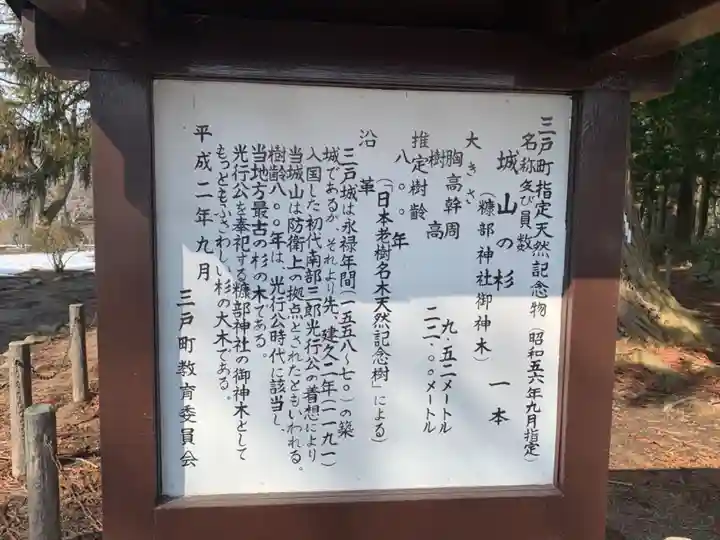 三戸町指定天然記念物(昭和五六年九月指定)
名称及び員数
城山の杉 一本
(糠部神社御神木)
大きさ
胸高幹周 九.五二メートル
樹高 二二.〇〇メートル
推定樹齢
八〇〇年
(「日本老樹名木天然記念樹」による)
沿革
三戸城は永禄年間(一五五八〜七〇)の築
城であるが、それより先、建久二年(一一九一)
入国した初代南部三郎光行公の着想により
当城山は防衛上の拠点とされたともいわれる。
樹齢八〇〇年は、光行公時代に該当し、
当地方最古の杉の木である。
光行公を奉祀する糠部神社の御神木として
もっともふさわしい杉の大木である。
平成二年九月
三戸町教育委員会